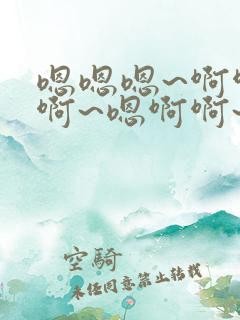 嗯嗯嗯~啊啊
啊~嗯啊啊~
空骑
未经同意禁止转载